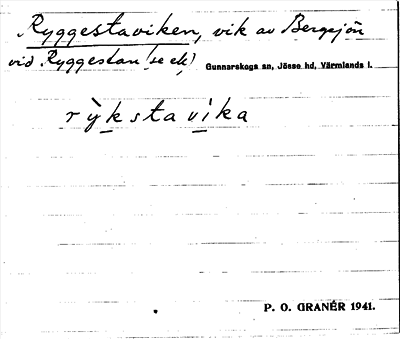 Ryggestaviken, vik av Bergsjön
vid Ryggestan (se ek)
Gunnarskogs sn, Jösse hd, Värmlands l.
rỳkstavìka
P. O. GRANÉR 1941.